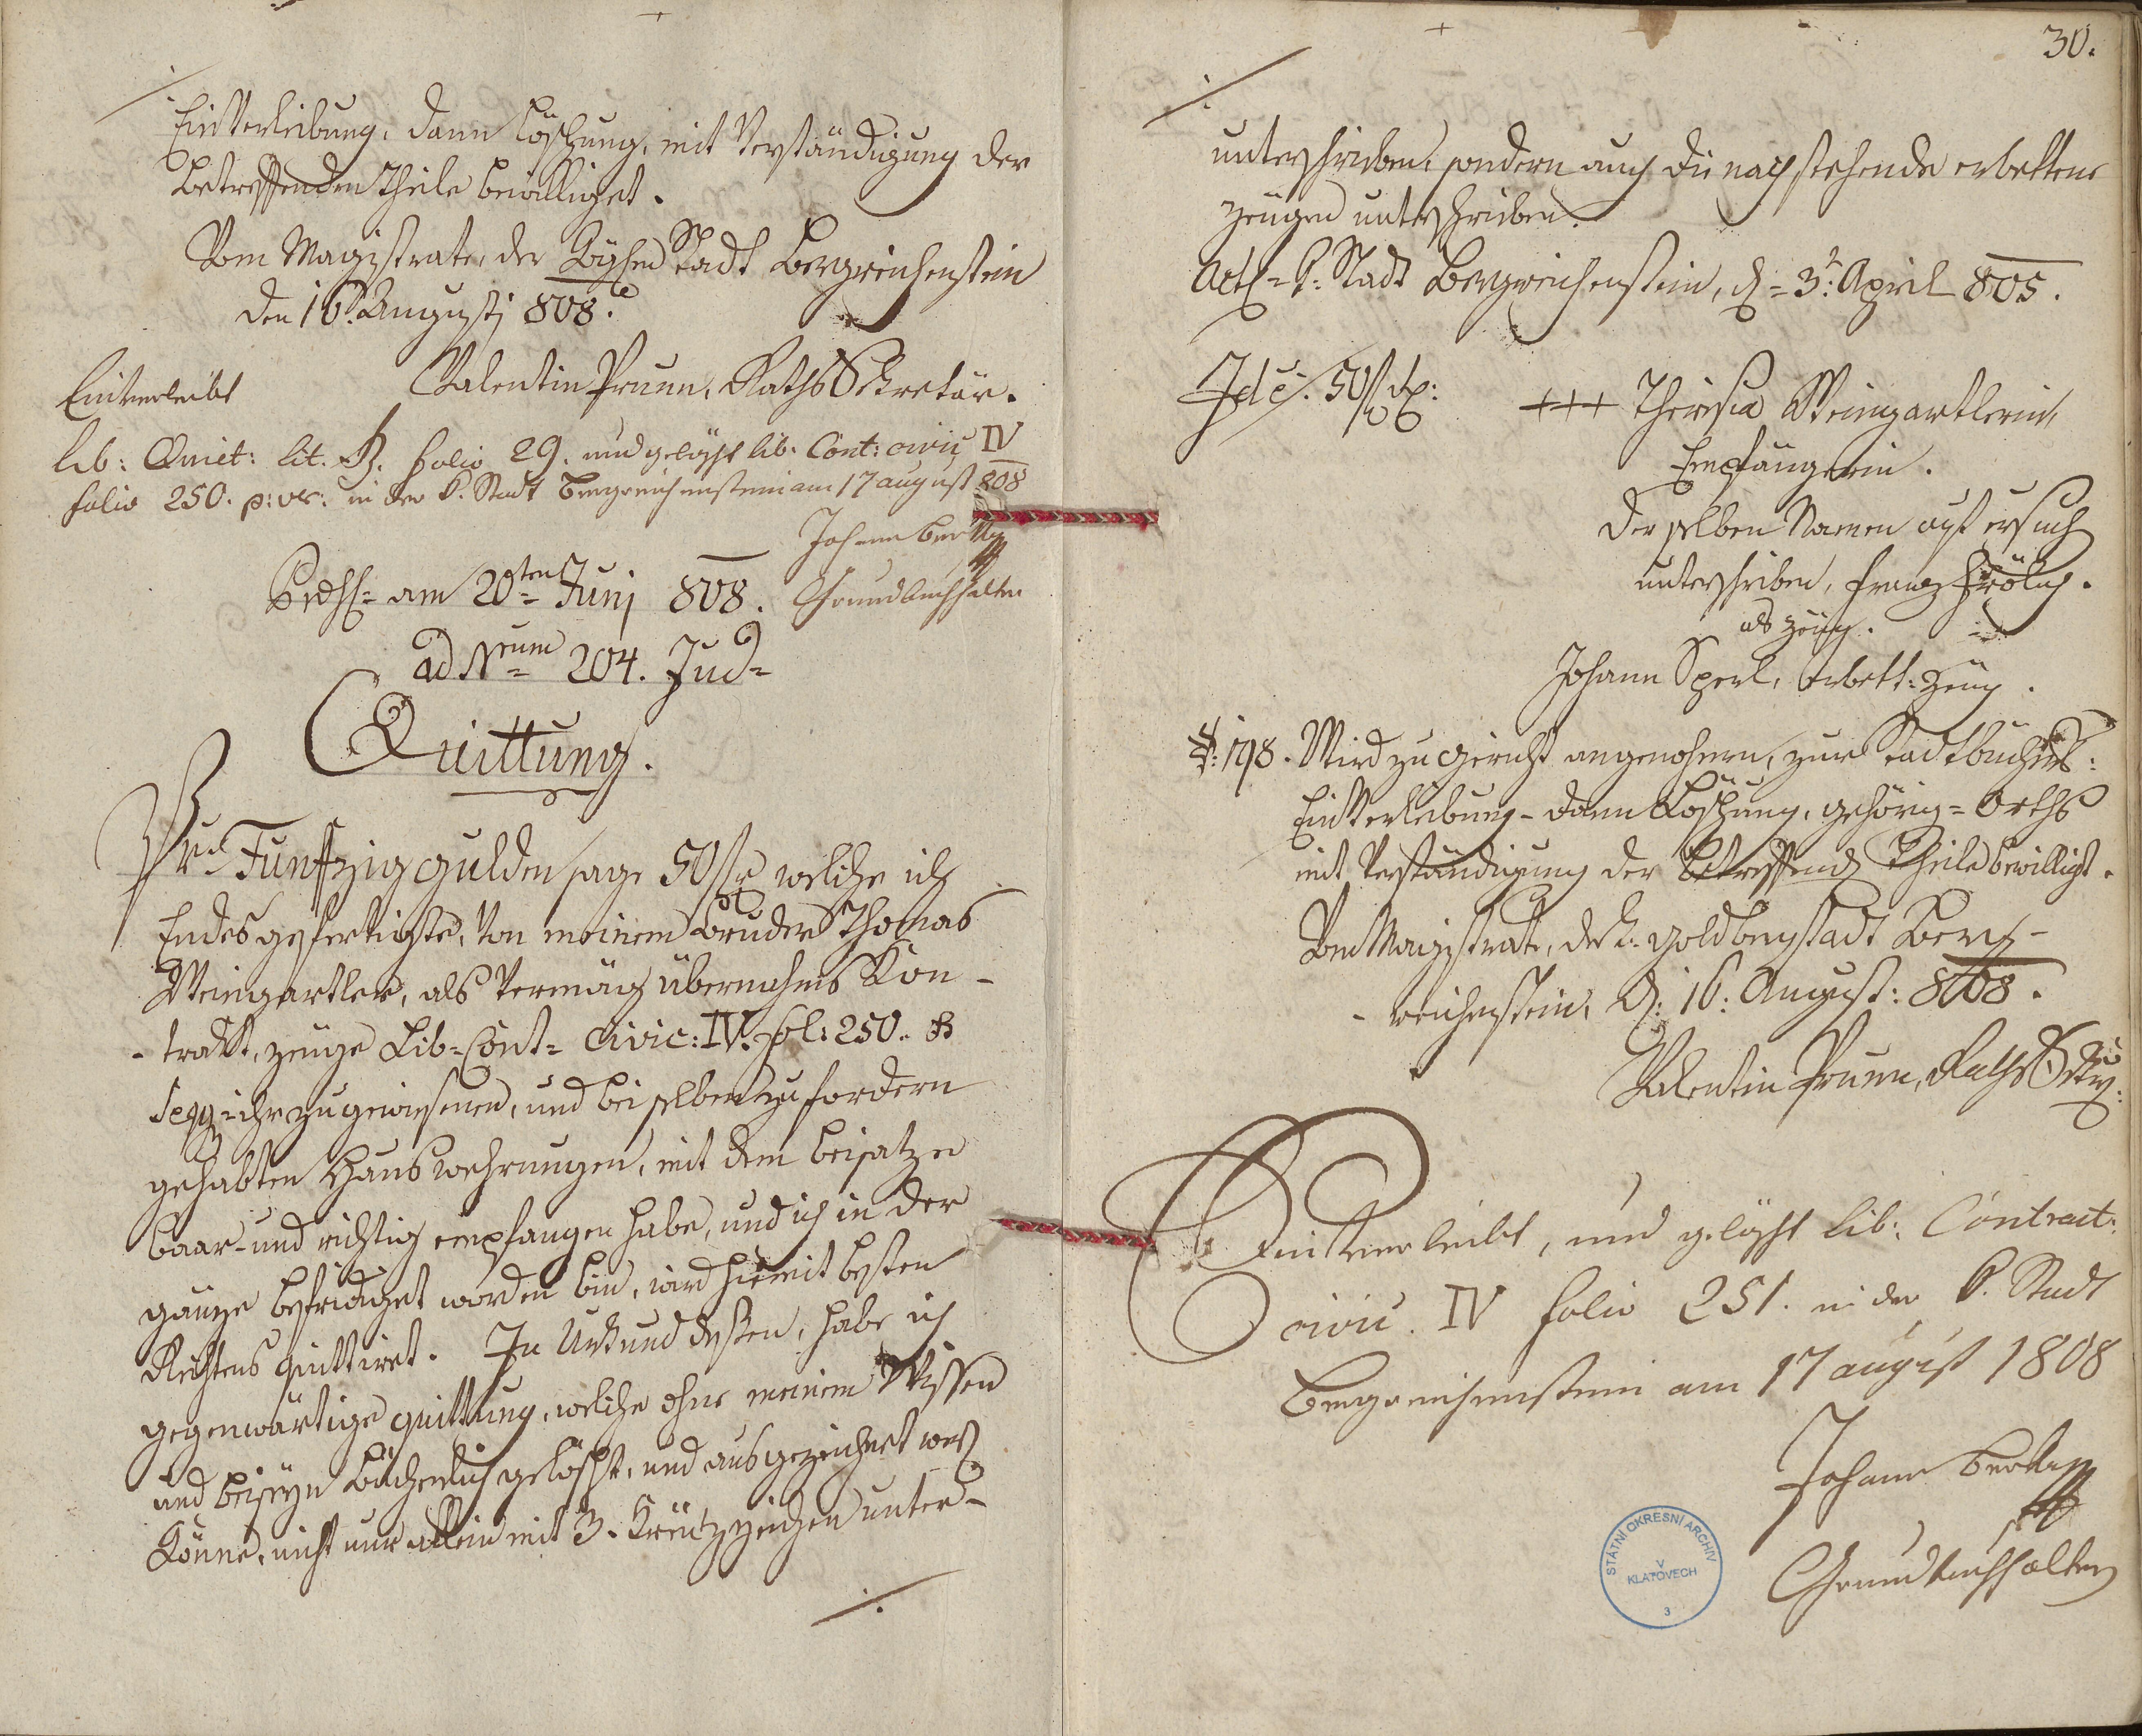 Einverleibung, dann Löschung, mit Verständigung der
betreffenden Theile bewilliget.
Vom Magistrate der Stadt Bergreichenstein
den 16. Augusti 808.
Valentin Prunn, Raths Sekretär.
Einverleibt
lib: Quiet: lit. B. folio 29. und gelöscht lib: Cont: civic IV
folio 250. p: v: in der k. Stadt Bergreichenstein am 17 august 808
Johann
Grundbuchhalter
am 20ten Junj 808.
ad Nrum 204. Jud=
Quittung.
Pr. Funfzig gulden sage 50 f welche ich
Endesgefertigte, von meinem Bruder Thomas
Weingartler, als vermög übernehms Kon-
-trakt, zeuge Lib= Cont= Civic: IV. fol: 250. B
seqq ihr zugewiesenen, und bei selben zu fordern
gehabten Hauswehrungen, mit dem beisatze
baar- und richtig empfangen habe, und ich in der
gänze befridiget worden bin, wird hiemit besten
Rechtens quittiret. In Urkund dessen, habe ich
gegenwärtige quittung, welche ohne meinem Wissen
und beiseyn bücherlich gelöscht, und ausgezeichnet werden
könne, nicht nur allein mit 3. Kreutzzeichen unter-
./.
30.
./.
unterschrieben, sondern auch die nachstehende erbettene
Zeugen unterschrieben.
Stadt Bergreichenstein, d= 3t April 805.
Id e: 50 f
+++ Theresia Weingartlerin
Empfängerin.
derselben Namen auf ersuch
unterschriben, Franz Frölich.
als zeug.
Johann Sperl, erbett: Zeug.
198. Wird zu gericht angenohmen, zur Stadtbücher:
Einverleibung- dann Löschung, gehörig= Orths
mit Verständigung der betreffend Theile bewilligt.
Vom Magistrate, der k. goldbergstadt Berg-
-reichenstein, d: 16: August: 808.
Valentin Prunn, Raths Sekr:
Einverleibt, und gelöscht lib: Contract:
civic. IV folio 251. in der k. Stadt
Bergreichenstein am 17 august 1808
Johann
Grundbuchhalter
STÁTNÍ OKRESNÍ ARCHIV
V
KLATOVECH
3